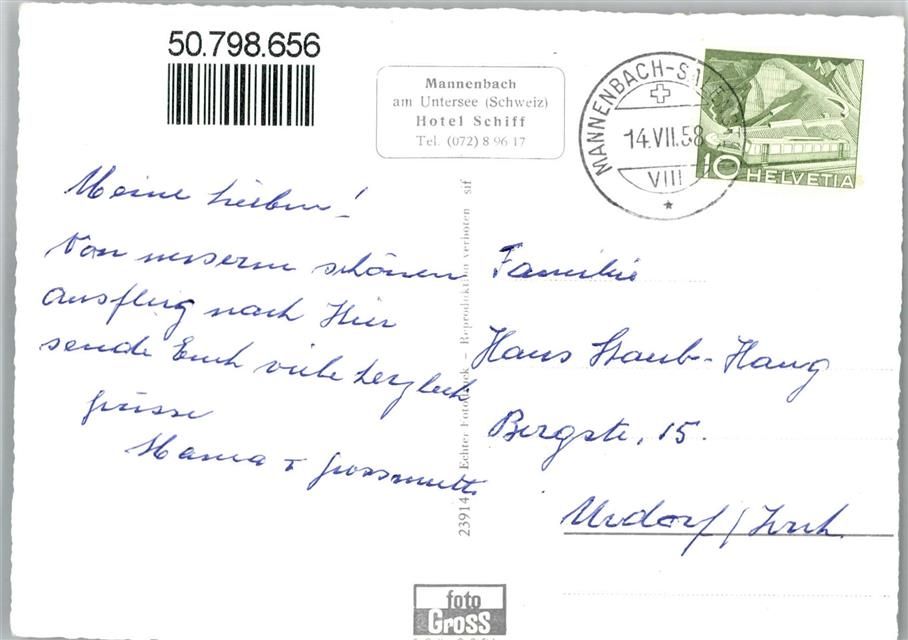 50.798.656
Mannenbach
am Untersee (Schweiz)
Hotel Schiff
Tel. (072) 8 96 17
MANNENBACH-SALENSTEIN
14.VII.58
VIII
10 HELVETIA
Meine Lieben!
Von unserm schönen
Ausflug nach Hier
sende Euch viele herzlich
grüsse
Mama + Grossmutti
23914 Echter Foto – Reproduktion verboten sif
Familie
Hans Staub-Haug
Bergstr. 15.
Urdorf/Zrch.
foto
GROSS